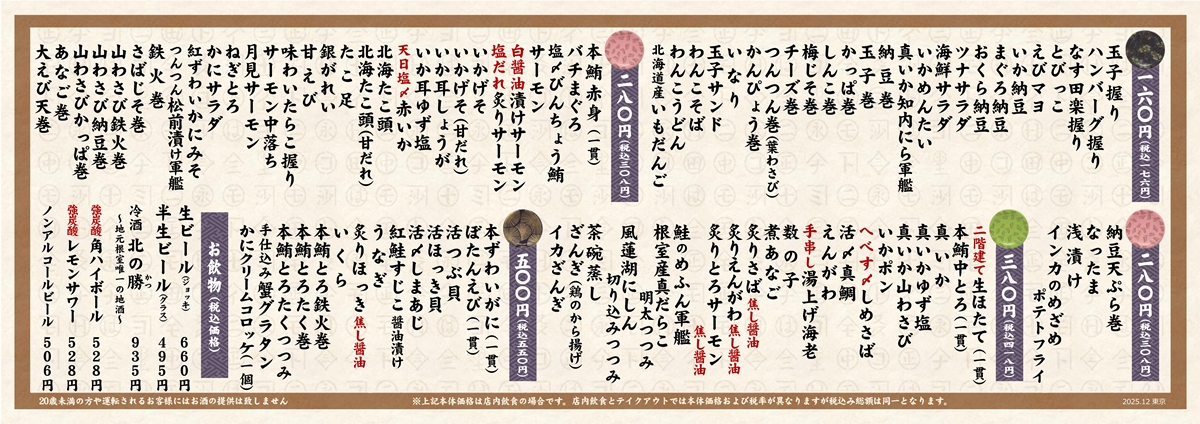 一六〇円(税込一七六円)
玉子握り
ハンバーグ握り
なす田楽握り
とびっこ
えびマヨ
いか納豆
まぐろ納豆
おくら納豆
ツナサラダ
海鮮サラダ
いかめんたい
真いか知内にら軍艦
納豆巻
玉子巻
かっぱ巻
しんこ巻
梅じそ巻
チーズ巻
つんつん巻(葉わさび)
かんぴょう巻
いなり
玉子サンド
わんこそば
わんこうどん
北海道産いもだんご
二八〇円(税込三〇八円)
本鮪赤身(一貫)
バチまぐろ
塩〆びんちょう鮪
サーモン
白醤油漬けサーモン
塩だれ炙りサーモン
いかげそ
いかげそ(甘だれ)
いか耳しょうが
いか耳ゆず塩
天日塩〆赤いか
北海たこ頭
北海たこ頭(甘だれ)
たこ足
銀がれい
甘えび
味わいたらこ握り
サーモン中落ち
月見サーモン
ねぎとろ
かにサラダ
紅ずわいかにみそ
つんつん松前漬け軍艦
鉄火巻
さばじそ巻
山わさび鉄火巻
山わさび納豆巻
山わさびかっぱ巻
あなご巻
大えび天巻
二八〇円(税込三〇八円)
納豆天ぷら巻
なったま
浅漬け
インカのめざめ
ポテトフライ
三八〇円(税込四一八円)
二階建て生ほたて(一貫)
本鮪中とろ(一貫)
真いか
真いかゆず塩
真いか山わさび
いかポン
へべす〆しめさば
活〆真鯛
えんがわ
手串し湯上げ海老
数の子
煮あなご
炙りさば焦し醤油
炙りえんがわ焦し醤油
炙りとろサーモン
焦し醤油
鮭のめふん軍艦
根室産真だらこ
明太つつみ
風蓮湖にしん
切り込みつつみ
茶碗蒸し
ざんぎ(鶏のから揚げ)
イカざんぎ
五〇〇円(税込五五〇円)
本ずわいがに(一貫)
ぼたんえび(一貫)
活つぶ貝
活ほっき貝
活〆しまあじ
紅鮭すじこ醤油漬け
うなぎ
炙りほっき焦し醤油
いくら
本鮪とろ鉄火巻
本鮪とろたく巻
本鮪とろたくつつみ
手仕込み蟹グラタン
かにクリームコロッケ(一個)
お飲物(税込価格)
生ビール(ジョッキ) 660円
半生ビール(グラス) 495円
冷酒 北の勝 935円
かつ
～地元根室唯一の地酒～
強炭酸角ハイボール 528円
強炭酸レモンサワー 528円
ノンアルコールビール 506円
20歳未満の方や運転されるお客様にはお酒の提供は致しません
※上記本体価格は店内飲食の場合です。店内飲食とテイクアウトでは本体価格および税率が異なりますが税込み総額は同一となります。
2025.12 東京